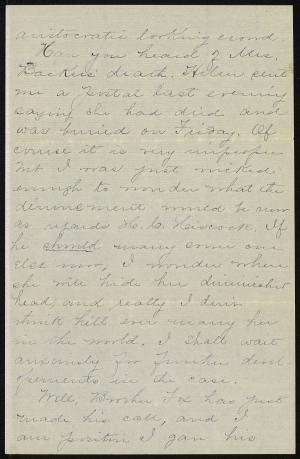 aristocratic looking crowd.
Have you heard of Mrs.
Backus' death. Helen sent
me a postal last evening
saying she had died and
was buried on Friday. Of
course it is very improper
but I was just wicked
enough to wonder what the
denouement would be now
as regards H. C. Hancock. If
he should marry some one
else now, I wonder where
she will hide her diminished
head, and really I don't
think he'll ever marry her
in the world. I shall wait
anxiously for further devel-
opements in the case.
Well, Brother Fox has just
made his call, and I
am positive I gave his